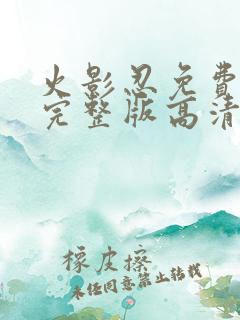 火影忍免费
完整版高清
橡皮擦
未经同意禁止转载